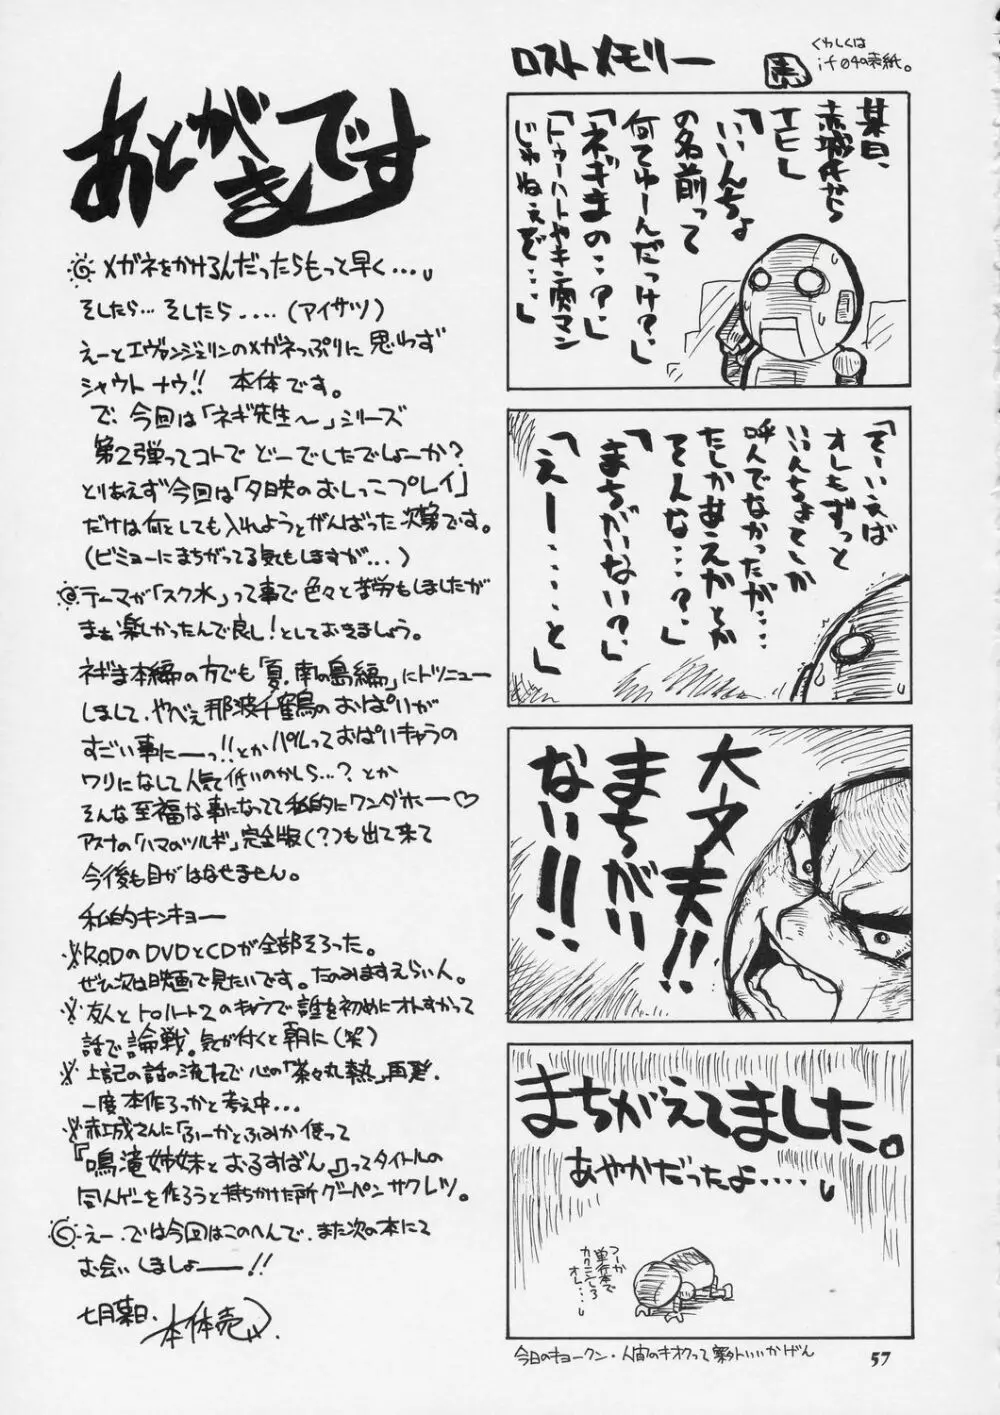 ロストメモリー
くわしくは
if049表紙。
某日、
赤城氏から
TEL
「いいんちょ
の名前って
何てゆーんだっけ?」
「ネギまの‥?」
「トゥーハートやキン肉マン
じゃねぇぞ‥」
「そーいえば
オレもずっと
いいんちょてしか
呼んでなかったが‥‥
たしかあえかとか
そんな‥‥?」
「まちがいない?」
「えー‥‥と」
大丈夫!!
まちがい
ない!!!
まちがえてました。
あやかだったよ‥‥‥
つーか
単行本で
カクニンしろ
オレ‥‥
今日のキョークン・人間のキオクって案外いいかげん
57
あとがきです
メガネをかけるんだったらもっと早く‥‥
そしたら…そしたら‥‥‥(アイサツ)
えーとエヴァンジェリンのメガネっぷりに思わず
シャウトナウ!! 本体です。
で、今回は「ネギ先生〜」シリーズ
第2弾ってコトでどーでしたでしょーか?
とりあえず今回は「夕映のおしっこプレイ」
だけは何としても入れようとがんばった次第です。
(ビミョーにまちがってる気もしますが‥‥)
テーマが「スク水」って事で色々と苦労もしましたが
まぁ楽しかったんで良し!としておきましょう。
ネギま本編の方でも「夏、南の島編」にトツニュー
しまして、やべぇ那波千鶴のおぱいが
すごい事にーっ!!とかパルっておぱいキャラの
ワリになして人気低いのかしら…?とか
そんな至福な事になってて私的にワンダホー♡
アスナの「ハマのツルギ」完全版(?)も出て来て
今後も目がはなせません。
私的キンキョー
※R.O.DのDVDとCDが全部そろった。
ぜひ次は映画で見たいです。たのみますえらい人。
※友人とトゥハート2のキャラで誰を初めにオトすかって
話で論戦。気が付くと朝に(笑)
※上記の話の流れで心の「茶々丸熱」再発。
一度本作ろっかと考え中…
※赤城さんに「ふーかとふみか使って
『鳴滝姉妹とおるすばん』」ってタイトルの
同人ゲーを作ろうと持ちかけた所グーペンサクレツ。
えー、では今回はこのへんで、また次の本にて
お会いしましょーー!!
七月某日、本体売